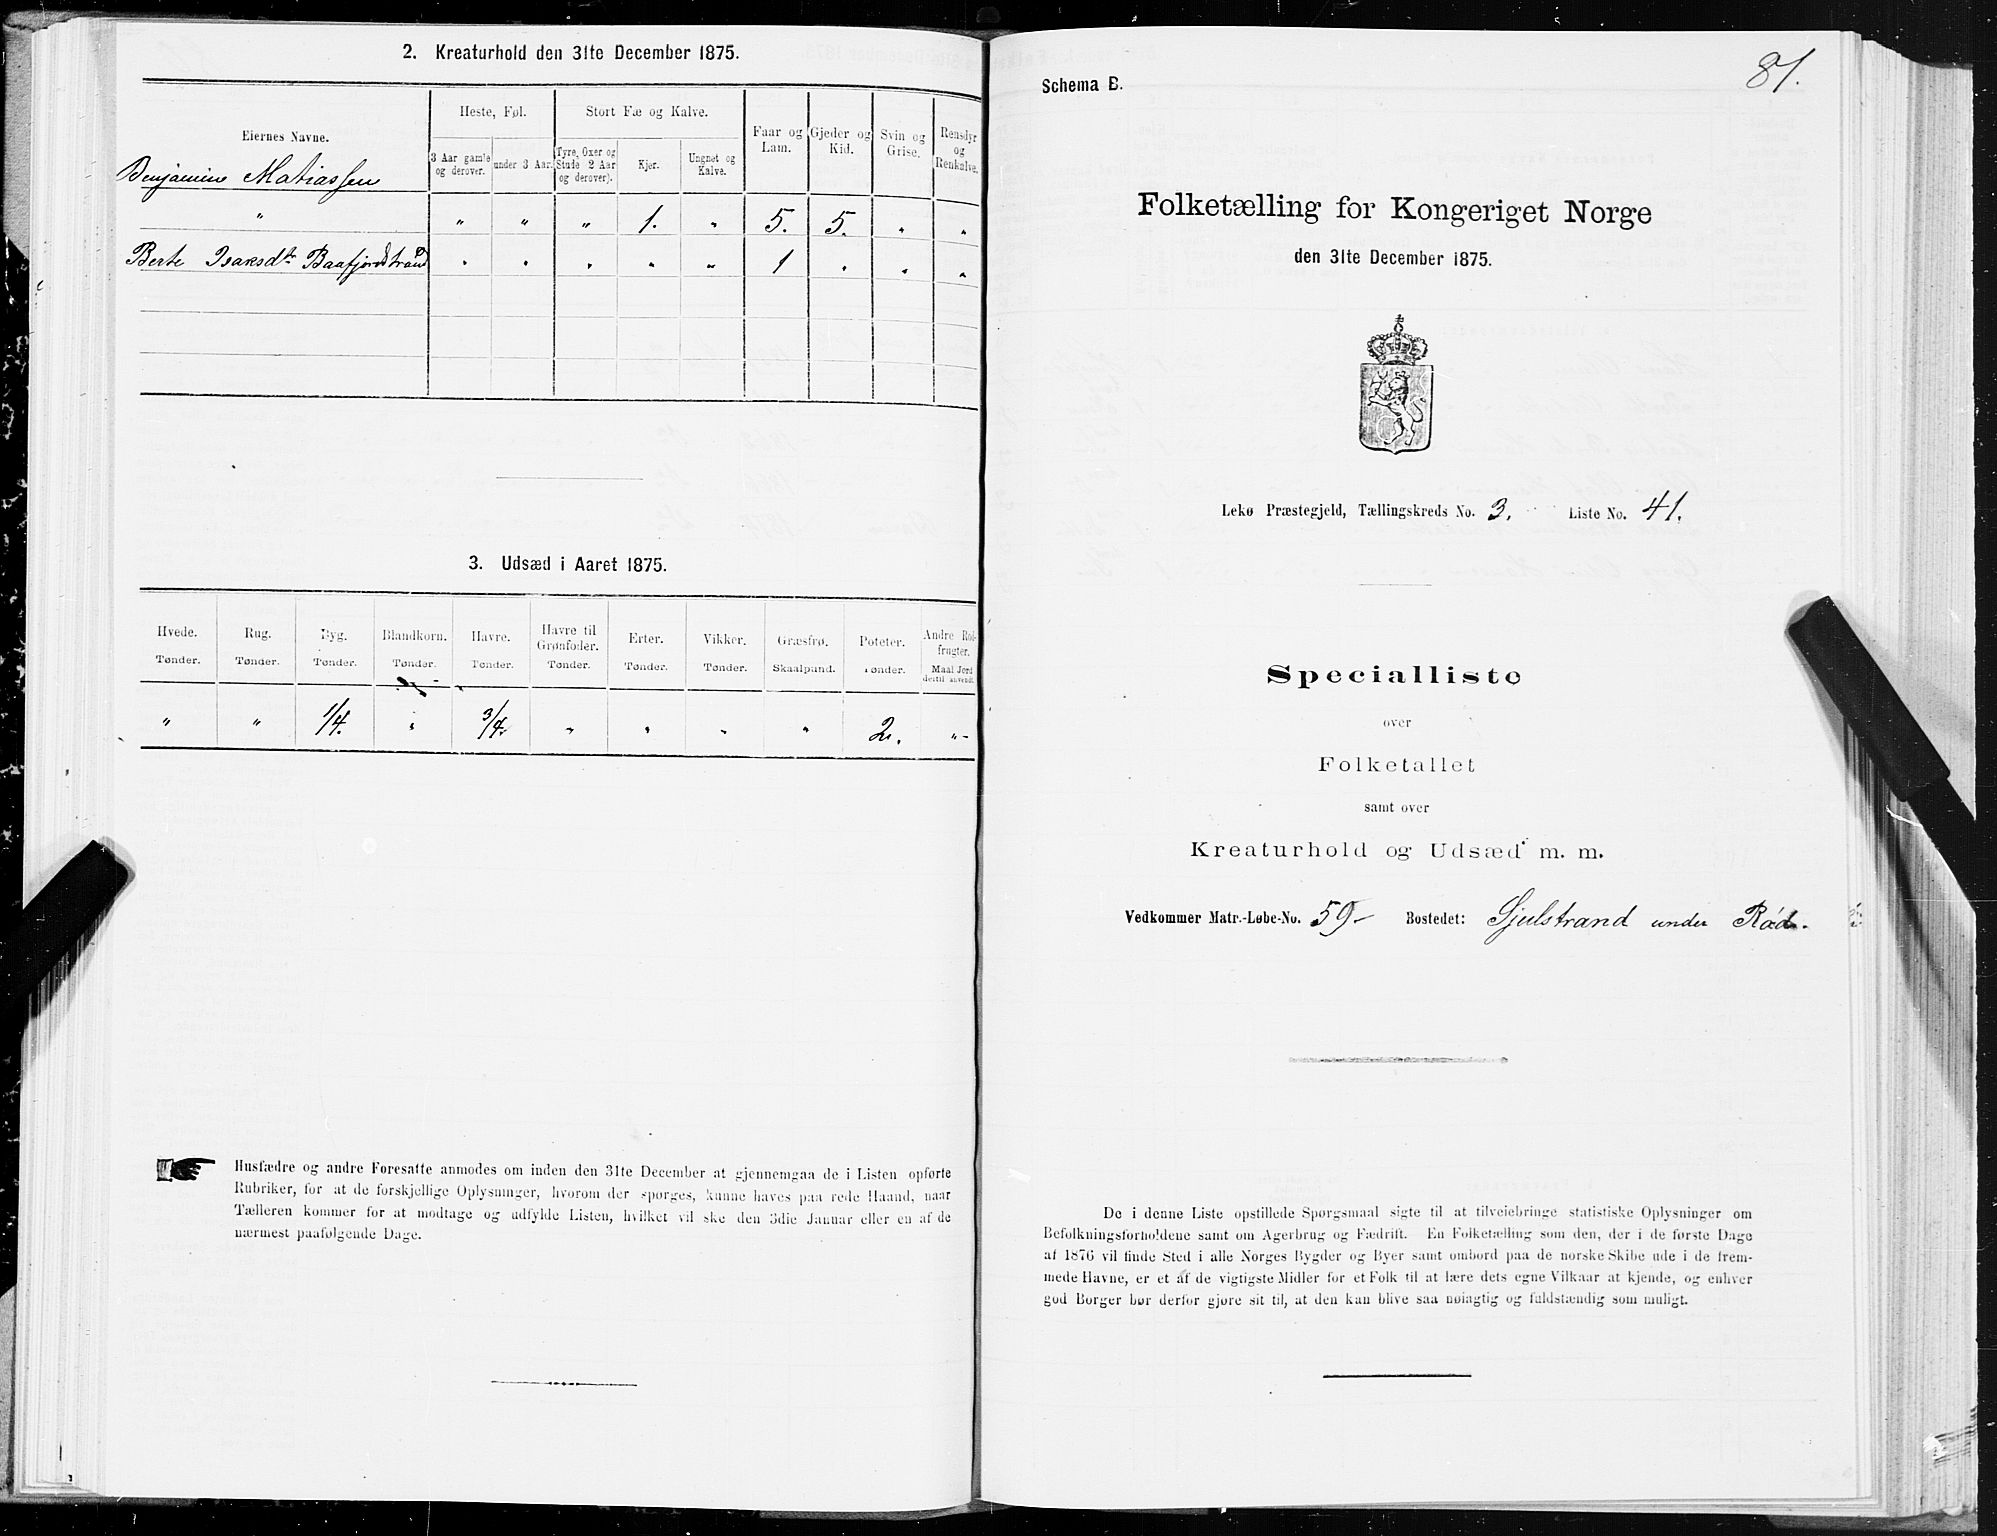 2. Kreaturhold den 31te December 1875.
Eiernes Navne.
Heste, Føl.
Stort Fæ og Kalve.
Faar og Lam.
Gjeder og Kid.
Svin og Grise.
Rensdyr og Renkalve.
3 Aar gamle og derover.
under 3 Aar.
Tyre, Oxer og Stude 2 Aar og derover).
Kjer.
Ungnet og Kalve.
Benjamin Matiassen
" " " " 1. " 5. 5. " "
Berte Isaksdt. Baafjordstrand " " " " " 1 " " "
3. Udsæd i Aaret 1875.
Hvede. Rug. Byg. Blandkorn. Havre. Havre til Grønfoder. Erter. Vikker. Græsfrø. Poteter. Andre Rodfrugter.
Tønder. Tønder. Tønder. Tønder. Tønder. Tønder. Tønder. Tønder. Skaalpund. Tønder. Maal Jord dertil anvendt.
" " 1/4. " 3/4. " " " " 2. "-
Husfædre og andre Foresatte anmodes om inden den 31te December at gjennemgaa de i Listen opførte
Rubriker, for at de forskjellige Oplysninger, hvorom der spørges, kunne haves paa rede Haand, naar
Tælleren kommer for at modtage og udfylde Listen, hvilket vil ske den 3die Januar eller en af de
nærmest paafølgende Dage.
81.
Schema B.
Folketælling for Kongeriget Norge
den 31te December 1875.
Lekø Præstegjeld, Tællingskreds No. 3. Liste No. 41.
Specialliste
over
Folketallet
samt over
Kreaturhold og Udsæd m. m.
Vedkommer Matr.-Løbe-No. 59- Bostedet: Sjulstrand under Rød.
De i denne Liste opstillede Spørgsmaal sigte til at tilveiebringe statistiske Oplysninger om
Befolkningsforholdene samt om Agerbrug og Fædrift. En Folketælling som den, der i de første Dage
af 1876 vil finde Sted i alle Norges Bygder og Byer samt ombord paa de norske Skibe ude i de frem-
mede Havne, er et af de vigtigste Midler for et Folk til at lære dets egne Vilkaar at kjende, og enhver
god Borger bør derfor gjøre sit til, at den kan blive saa nøiagtig og fuldstændig som muligt.